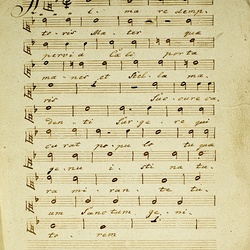 al ma redemp
to ris Ma ter qua
pervia Cæli porta
ma nes et Stella ma
ris Succure ca
denti Surgere qui
cu rat po pu lo tu qua
ge nu i sti na tu
ra mi ran te tu
um Sanctum ge ni
to rem